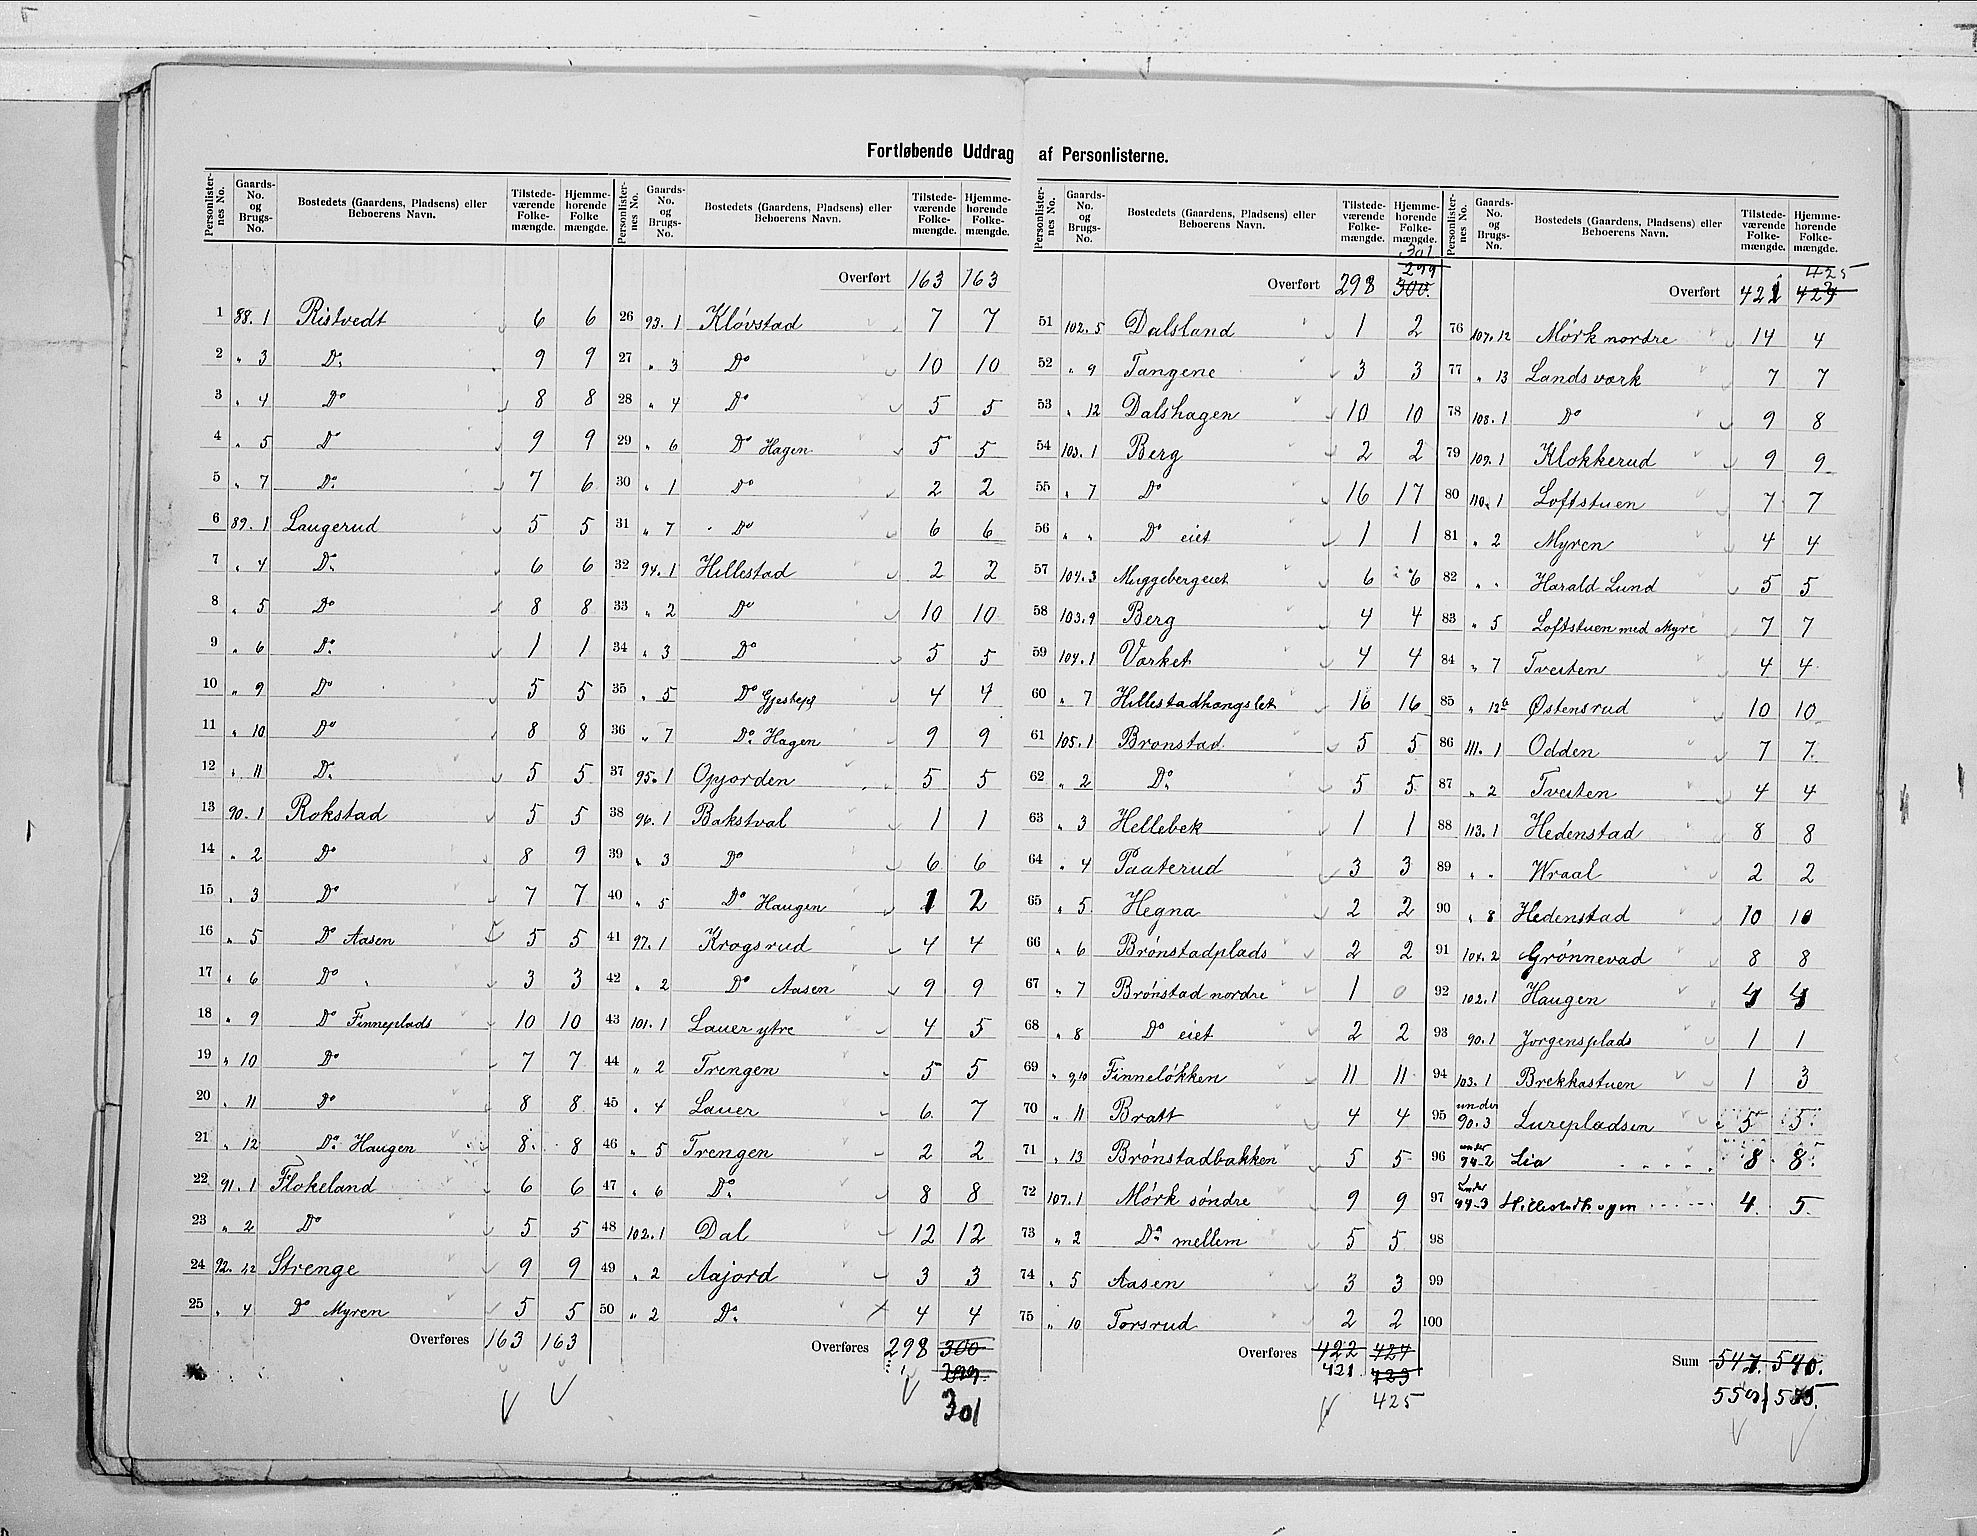 Fortløbende Uddrag af Personlisterne.
Personlister-nes No. | Gaards-No. og Brugs-No. | Bostedets (Gaardens, Pladsens) eller Beboerens Navn. | Tilstede-værende Folke-mængde. | Hjemme-hørende Folke mængde.
1 88. 1 Ristvedt 6 6
2 " 3 Do 9 9
3 " 4 Do 8 8
4 " 5 Do 9 9
5 " 7 Do 7 6
6 89. 1 Laugerud 5 5
7 " 4 Do 6 6
8 " 5 Do 8 8
9 " 6 Do 1 1
10 " 9 Do 5 5
11 " 10 Do 8 8
12 " 11 Do 5 5
13 90. 1 Rokstad 5 5
14 " 2 Do 8 9
15 " 3 Do 7 7
16 " 5 Do Aasen 5 5
17 " 6 Do 3 3
18 " 9 Do Finneplads 10 10
19 " 10 Do 7 7
20 " 11 Do 8 8
21 " 12 Do Haugen 8 8
22 91. 1 Flokeland 6 6
23 " 2 Do 5 5
24 92. Strenge 9 9
25 " 4 Do Myren 5 5
Overføres 163 163
Personlister-nes No. | Gaards-No. og Brugs-No. | Bostedets (Gaardens, Pladsens) eller Beboerens Navn. | Tilstede-værende Folke-mængde. | Hjemme-hørende Folke-mængde.
Overført 163 163
26 93. 1 Kløvstad 7 7
27 " 3 Do 10 10
28 " 4 Do 5 5
29 " 6 Do Hagen 5 5
30 " 1 Do 2 2
31 " 7 Do 6 6
32 94. 1 Hillestad 2 2
33 " 2 Do 10 10
34 " 3 Do 5 5
35 " 5 Do 4 4
36 " 7 Do Hagen 9 9
37 95. 1 Opjorden 5 5
38 96. 1 Bakstval 1 1
39 " 3 Do 6 6
40 " 5 Do Haugen 1 2
41 97. 1 Krogsrud 4 4
42 " 2 Do Aasen 9 9
43 101. 1 Lauer ytre 4 5
44 " 2 Trengen 5 5
45 " 4 Lauer 6 7
46 " 5 Trengen 2 2
47 " 6 Do 8 8
48 102. 1 Dal 12 12
49 " 2 Aajord 3 3
50 " 2 Do 4 4
Overføres 298 300
299.
301
Personlister-nes No. | Gaards-No. og Brugs-No. | Bostedets (Gaardens, Pladsens) eller Beboerens Navn. | Tilstede-værende Folke-mængde. | Hjemme-hørende Folke-mængde.
301
299
Overført 298 300.
51 102. 5 Dalsland 1 2
52 " 9 Tangene 3 3
53 " 12 Dalshagen 10 10
54 103. 1 Berg 2 2
55 " 7 Do 16 17
56 " " Do eiet 1 1
57 104. 3 Muggebergeiet 6 6
58 103. 9 Berg 4 4
59 104. 1 Varket 4 4
60 " 7 Hillestadhangslet 16 16
61 105. 1 Bronstad 5 5
62 " 2 Do 5 5
63 " 3 Hellebek 1 1
64 " 4 Paaterud 3 3
65 " 5 Hegna 2 2
66 " 6 Brønstadplads 2 2
67 " 7 Brønstad nordre 1 0
68 " 8 Do eiet 2 2
69 " 9,10 Finneløkken 11 11
70 " 11 Bratt 4 4
71 " 13 Brønstadbakken 5 5
72 107. 1 Mørk søndre 9 9
73 " 2 Do mellem 5 5
74 " 5 Aasen 3 3
75 " 10 Torsrud 2 2
Overføres 422 424
421. 423
425
Personlister-nes No. | Gaards-No. og Brugs-No. | Bostedets (Gaardens, Pladsens) eller Beboerens Navn. | Tilstede-værende Folke-mængde. | Hjemme-hørende Folke-mængde.
425
Overført 421
76 107. 12 Mørk nordre 14 4
77 " 13 Landsvark 7 7
78 108. 1 Do 9 8
79 109. 1 Klokkerud 9 9
80 110. 1 Loftstuen 7 7
81 " 2 Myren 4 4
82 " " Harald Lund 5 5
83 " 5 Loftstuen med Myre 7 7
84 " 7 Tveiten 4 4
85 " Østensrud 10 10
86 111. 1 Odden 7 7
87 " 2 Tveiten 4 4
88 113. 1 Hedenstad 8 8
89 " " Wraal 2 2
90 " 8 Hedenstad 10 10
91 104. 2 Grønnevad 8 8
92 102. 1 Haugen 4 4
93 90. 1 Jørgensplads 1 1
94 103. 1 Brekkastuen 1 3
95 under 90. 3 Lurepladsen 5 5
96 under 94-2 Lia 8 8
97 under 94-3 Hillestadhagen 4 5
98
99
100
Sum 547. 540.